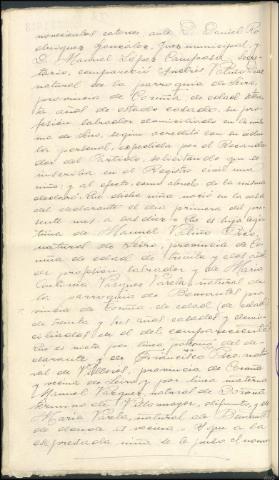 novecientos catorce, ante D. Daniel Ro
dríguez González, Juez municipal, y
D. Manuel López Campos, Secre
tario, compareció Andrés Valiño
natural de la parroquia de Leiro,
provincia de Coruña, de edad
años, de estado casado, su pro
fesión labrador domiciliado en la mis
ma de dicho, según acredita con su cédu
la personal, expedida por el Recauda
dor del Partido, solicitando que se
inscriba en el Registro civil una
niña; y al efecto, como abuelo de la misma
declaró: Que dicha niña nació en la casa
del declarante el día primero del pre
sente mes a las diez. Que es hija legí
tima de Manuel Valiño Pico,
natural de Leiro, provincia de Co
ruña de edad de treinta y dos años
de profesión labrador y de María
Vázquez Varela, natural de
la parroquia de Bemantes pro
vincia de Coruña de edad de edad
de treinta y tres años casados y domi
ciliados en el del compareciente
Que es nieta por línea paterna del de
clarante y de Francisca Pico, natu
ral de Villozás, provincia de Coruña
y vecina de Leiro y por línea materna
Manuel Vázquez, natural de
término de Villamayor, difunto, y de
María Varela, natural de
de donde es vecina. Y que a la
expresada niña se le puso el nom